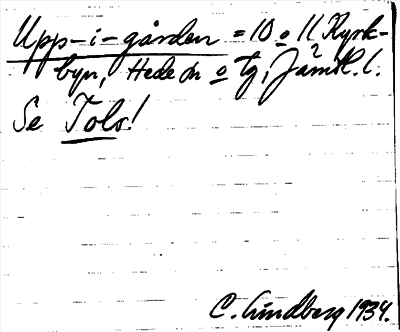 Upp-i-gården = 10 o 11 Kyrk-
byn, Hede sn o tg, Jämtl. l.
Se Tolo!
C. Lindberg 1934.